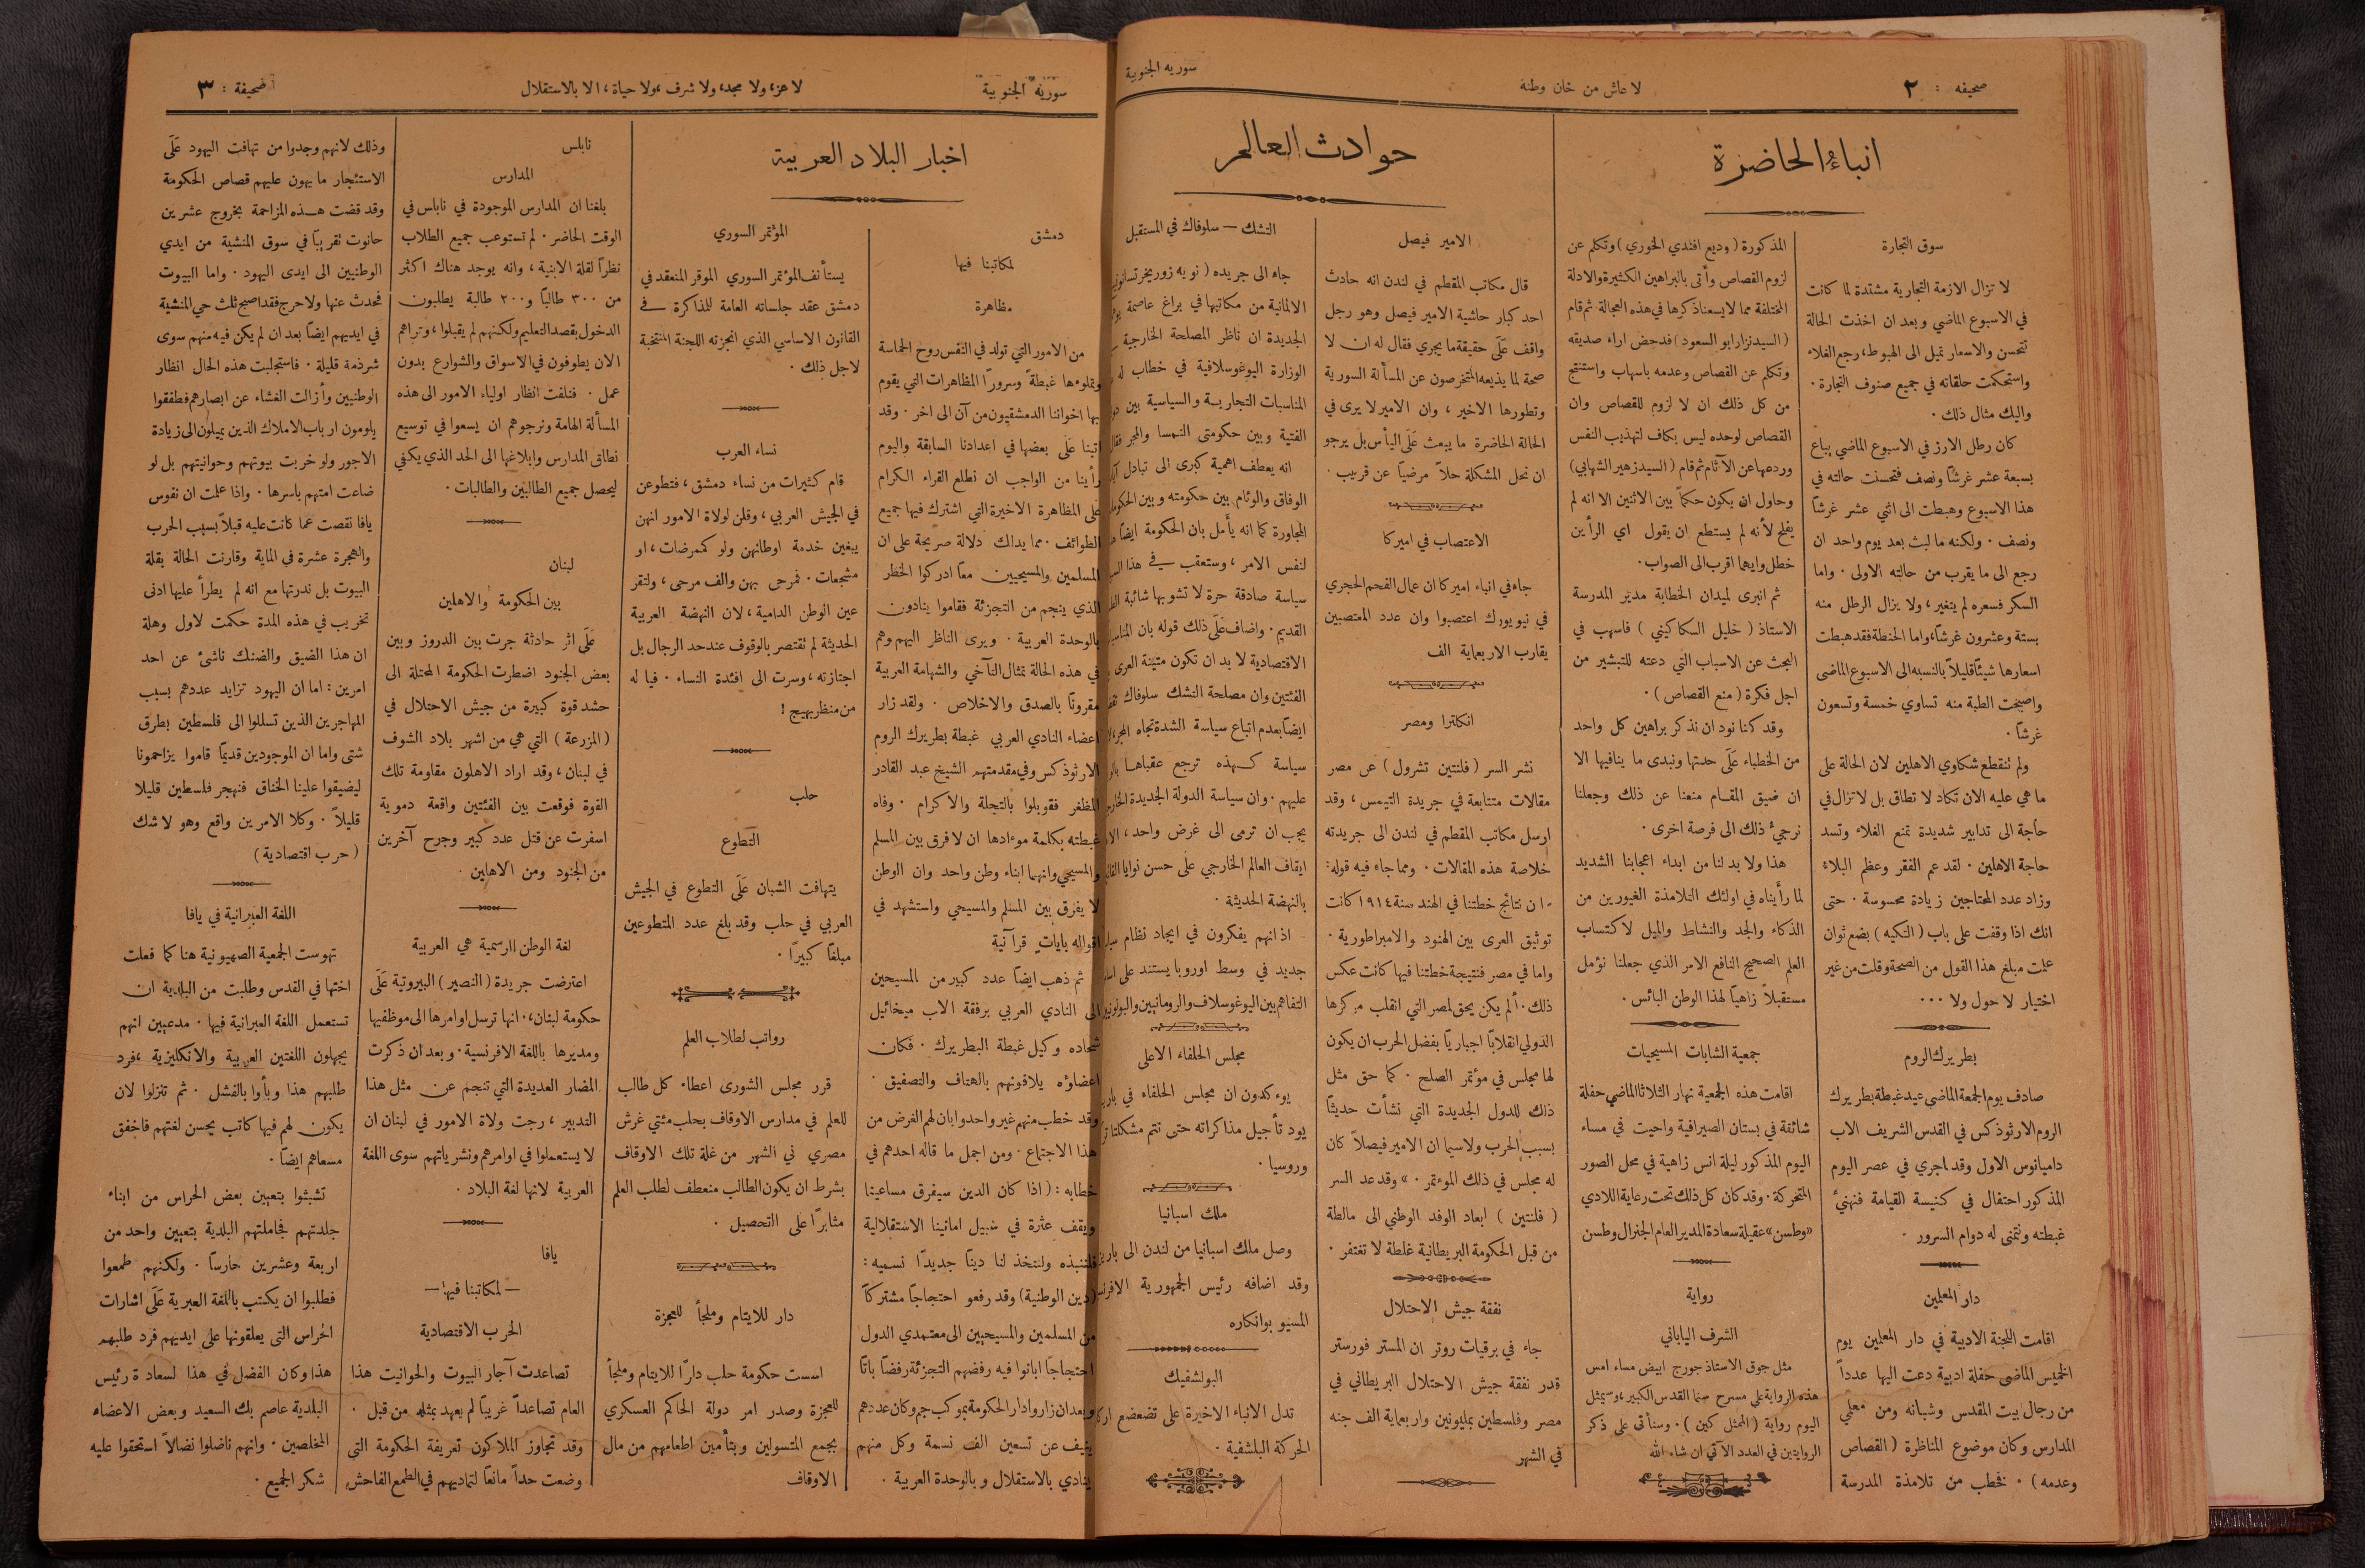 صحيفه : ٢
لا عاش من خان وطنه
سوريه الجنوبية
انباء الحاضرة
سوق التجارة
لا تزال الازمة التجارية مشتدة لما كانت
في الاسبوع الماضي وبعد ان اخذت الحالة
تتحسن والاسعار تميل الى الهبوط، رجع الغلاء
واستحكمت حلقاته في جميع صنوف التجارة .
واليك مثال ذلك .
كان رطل الارز في الاسبوع الماضي يباع
بسبعة عشر غرشًا ونصف فتحسنت حالته في
هذا الاسبوع وهبطت الى اثني عشر غرشًا
ونصف . ولكنه ما لبث بعد يوم واحد ان
رجع الى ما يقرب من حالته الاولى . واما
السكر فسعره لم يتغير، ولا يزال الرطل منه
بستة وعشرون غرشًا، واما الحنطة فقد هبطت
اسعارها شيئًا قليلاً بالنسبه الى الاسبوع الماضى
واصبحت الطبة منه تساوي خمسة وتسعون
غرشًا .
ولم تنقطع شكاوي الاهلين لان الحالة على
ما هي عليه الان تكاد لا تطاق بل لا تزال في
حاجة الى تدابير شديدة تمنع الغلاء وتسد
حاجة الاهلين . لقد عم الفقر وعظم البلاء
وزاد عدد المحتاجين زيادة محسوسة . حتى
انك اذا وقفت على باب ( التكيه ) بضع ثوان
علمت مبلغ هذا القول من الصحة وقلت من غير
اختيار لا حول ولا ...
بطريرك الروم
صادف يوم الجمعة الماضى عيد غبطة بطريرك
الروم الارثوذكس في القدس الشريف الاب
داميانوس الاول وقد اجري في عصر اليوم
المذكور احتفال في كنيسة القيامة فنهنئ
غبطته ونتمنى له دوام السرور .
دار المعلمين
اقامت اللجنة الادبية في دار المعلمين يوم
الخميس الماضى حفلة ادبية دعت اليها عدداً
من رجال بيت المقدس وشبانه ومن معلمي
المدارس وكان موضوع المناظرة ( القصاص
وعدمه ) . فخطب من تلامذة المدرسة
المذكورة ( وديع افندي الخوري ) وتكلم عن
لزوم القصاص وأتى بالبراهين الكثيرة والادلة
المختلفة مما لا يسعنا ذكرها في هذه العجالة ثم قام
( السيد نزار ابو السعود ) فدحض اراء صديقه
وتكلم عن القصاص وعدمه باسهاب واستنتج
من كل ذلك ان لا لزوم للقصاص وان
القصاص لوحده ليس بكاف لتهذيب النفس
وردعها عن الآثام ثم قام ( السيد زهير الشهابي )
وحاول ان يكون حكماً بين الاثنين الا انه لم
يفلح لأنه لم يستطع ان يقول اي الرأيين
خطل وايهما اقرب الى الصواب .
ثم انبرى لميدان الخطابة مدير المدرسة
الاستاذ ( خليل السكاكيني ) فاسهب في
البحث عن الاسباب التي دعته للتبشير من
اجل فكرة ( منع القصاص ) .
وقد كنا نود ان نذكر براهين كل واحد
من الخطباء عَلَى حدتها ونبدى ما ينافيها الا
ان ضيق المقام منعنا عن ذلك وجعلنا
نرجئ ذلك الى فرصة اخرى .
هذا ولا بد لنا من ابداء اعجابنا الشديد
لما رأيناه في اولئك التلامذة الغيورين من
الذكاء والجد والنشاط والميل لاكتساب
العلم الصحيح النافع الامر الذي جعلنا نؤمل
مستقبلاً زاهياً لهذا الوطن البائس .
جمعية الشابات المسيحيات
اقامت هذه الجمعية نهار الثلاثا الماضي حفلة
شائقة في بستان الصيرافية واحيت في مساء
اليوم المذكور ليلة انس زاهية في محل الصور
المتحركة . وقد كان كل ذلك تحت رعاية اللادي
«وطسن» عقيلة سعادة المدير العام الجنرال وطسن
رواية
الشرف الياباني
مثل جوق الاستاذ جورج ابيض مساء امس
هذه الرواية على مسرح سنما القدس الكبير، وسيمثل
اليوم رواية ( الممثل كين ) . وسنأتى على ذكر
الروايتين في العدد الآتي ان شاء الله
حوادث العالم
الامير فيصل
قال مكاتب المقطم في لندن انه حادث
احد كبار حاشية الامير فيصل وهو رجل
واقف عَلَى حقيقة ما يجري فقال له ان لا
صحة لما يذيعه المتخرصون عن المسألة السورية
وتطورها الاخير ، وان الامير لا يرى في
الحالة الحاضرة ما يبعث عَلَى اليأس بل يرجو
ان تحل المشكلة حلاً مرضيًا عن قريب .
الاعتصاب في اميركا
جاء في انباء اميركا ان عمال الفحم الحجري
في نيويورك اعتصبوا وان عدد المعتصبين
يقارب الاربعماية الف
انكلترا ومصر
نشر السر ( فلنتين تشرول ) عن مصر
مقالات متتابعة في جريدة التيمس ، وقد
ارسل مكاتب المقطم في لندن الى جريدته
خلاصة هذه المقالات . ومما جاء فيه قوله :
ان نتائج خطتنا في الهند سنة ١٩١٤ كانت
توثيق العرى بين الهنود والامبراطورية .
واما في مصر فنتيجة خطتنا فيها كانت عكس
ذلك . ألم يكن يحق لمصر التي انقلب مركزها
الدولي انقلابًا اجباريًا بفضل الحرب ان يكون
لها مجلس في مؤتمر الصلح . كما حق مثل
ذلك للدول الجديدة التي نشأت حديثًا
بسبب الحرب ولاسيما ان الامير فيصلاً كان
له مجلس في ذلك الموءتمر . » وقد عد السر
( فلنتين ) ابعاد الوفد الوطني الى مالطة
من قبل الحكومة البريطانية غلطة لا تغتفر .
نفقة جيش الاحتلال
جاء في برقيات روتر ان المستر فورستر
قدر نفقة جيش الاحتلال البريطاني في
مصر وفلسطين بمليونين واربعماية الف جنه
في الشهر
التشك — سلوفاك في المستقبل
جاء الى جريده ( نويه زوريخر
الالمانية من مكاتبها في براغ عاصمة
الجديدة ان ناظر المصلحة الخارجية
الوزارة اليوغوسلافية في خطاب له
المناسبات التجارية والسياسية بين
الفتية وبين حكومتى النمسا والمجر فقال
انه يعطف اهمية كبرى الى تبادل
الوفاق والوئام بين حكومته وبين
المجاورة كما انه يأمل بان الحكومة ايضًا
لنفس الامر ، وستعقب في هذا
سياسة صادقة حرة لا تشوبها شائبة
القديم . واضاف عَلَى ذلك قوله بان
الاقتصادية لا بد ان تكون متينة العرى
الفئتين وان مصلحة التشك سلوفاك
ايضًا بعدم اتباع سياسة الشدة تجاه
سياسة كهذه ترجع عقباها
عليهم . وان سياسة الدولة الجديدة
يجب ان ترمى الى غرض واحد ،
ايقاف العالم الخارجي على حسن نوايا
بالنهضة الحديثة .
اذ انهم يفكرون في ايجاد نظام
جديد في وسط اوروبا يستند على
التفاهم بين اليوغوسلاف والرومانيين
مجلس الحلفاء الاعلى
يوءكدون ان مجلس الحلفاء في
يود تأجيل مذاكراته حتى تتم
وروسيا .
ملك اسبانيا
وصل ملك اسبانيا من لندن الى
وقد اضافه رئيس الجمهورية
المسيو بوانكاره
البولشفيك
تدل الانباء الاخيرة على تضعضع
الحركة البلشفية .
سورية الجنوبية
لا عز، ولا مجد، ولا شرف، ولا حياة، الا بالاستقلال
صحيفة : ٣
اخبار البلاد العربية
دمشق
لمكاتبنا فيها
مظاهرة
من الامور التي تولد في النفس روح الحماسة
وتملوءها غبطةً وسرورًا المظاهرات التي يقوم
بها اخواننا الدمشقيون من آن الى اخر . وقد
اتينا عَلَى بعضها في اعدادنا السابقة واليوم
رأينا من الواجب ان نطلع القراء الكرام
عَلَى المظاهرة الاخيرة التي اشترك فيها جميع
الطوائف . مما يدلك دلالة صريحة على ان
المسلمين والمسيحيين معًا ادركوا الخطر
الذي ينجم من التجزئة فقاموا ينادون
بالوحدة العربية . ويرى الناظر اليهم وهم
في هذه الحالة تمثال التآخي والشهامة العربية
مقرونًا بالصدق والاخلاص . ولقد زار
اعضاء النادي العربي غبطة بطريرك الروم
الارثوذكس وفي مقدمتهم الشيخ عبد القادر
المظفر فقوبلوا بالتجلة والاكرام . وفاه
غبطته بكلمة موءداها ان لا فرق بين المسلم
والمسيحي وانهما ابناء وطن واحد وان الوطن
لا يفرق بين المسلم والمسيحي واستشهد في
اقواله بايات قرآنية
ثم ذهب ايضًا عدد كبير من المسيحين
الى النادي العربي برفقة الاب ميخائيل
شحاده وكيل غبطة البطريرك . فكان
اعضاؤه يلاقونهم بالهتاف والتصفيق .
وقد خطب منهم غير واحد وابان لهم الغرض من
هذا الاجتماع . ومن اجمل ما قاله احدهم في
خطابه : ( اذا كان الدين سيفرق مساعينا
ويقف عثرة في سبيل امانينا الاستقلالية
فلننبذه ولنتخذ لنا دينًا جديدًا نسميه :
(دين الوطنية) وقد رفعو احتجاجًا مشتركاً
من المسلمين والمسيحيين الى معتمدي الدول
احتجاجًا ابانوا فيه رفضهم التجزئة رفضًا باتًا
وبعد ان زاروا دار الحكومة بموكب جم وكان عددهم
ينيف عن تسعين الف نسمة وكل منهم
ينادي بالاستقلال وبالوحدة العربية .
المؤتمر السوري
يستأنف المؤتمر السوري الموقر المنعقد في
دمشق عقد جلساته العامة للمذاكرة في
القانون الاساسي الذي انجزته اللجنة المنتخبة
لاجل ذلك .
نساء العرب
قام كثيرات من نساء دمشق ، فتطوعن
في الجيش العربي ، وقلن لولاة الامور انهن
يبغين خدمة اوطانهن ولو كممرضات ، او
مشجعات . فمرحى بهن والف مرحى ، ولتقر
عين الوطن الدامية ، لان النهضة العربية
الحديثة لم تقتصر بالوقوف عند حد الرجال بل
اجتازته ، وسرت الى افئدة النساء . فيا له
من منظر بهيج !
حلب
التطوع
يتهافت الشبان عَلَى التطوع في الجيش
العربي في حلب وقد بلغ عدد المتطوعين
مبلغًا كبيرًا .
رواتب لطلاب العلم
قرر مجلس الشورى اعطاء كل طالب
للعلم في مدارس الاوقاف بحلب مئتي غرش
مصري في الشهر من غلة تلك الاوقاف
بشرط ان يكون الطالب منعطف لطلب العلم
مثابرًا على التحصيل .
دار للايتام وملجأ للعجزة
اسست حكومة حلب دارًا للايتام وملجأ
للعجزة وصدر امر دولة الحاكم العسكري
بجمع المتسولين وبتأمين اطعامهم من مال
الاوقاف
نابلس
المدارس
بلغنا ان المدارس الموجودة في نابلس في
الوقت الحاضر . لم تستوعب جميع الطلاب
نظرًا لقلة الابنية ، وانه يوجد هناك اكثر
من ٣٠٠ طالبًا و ٢٠٠ طالبة يطلبون
الدخول بقصد التعليم ولكنهم لم يقبلوا ، وتراهم
الان يطوفون في الاسواق والشوارع بدون
عمل . فنلفت انظار اولياء الامور الى هذه
المسألة الهامة ونرجوهم ان يسعوا في توسيع
نطاق المدارس وابلاغها الى الحد الذي يكفي
ليحصل جميع الطالبين والطالبات .
لبنان
بين الحكومة والاهلين
عَلَى اثر حادثة جرت بين الدروز وبين
بعض الجنود اضطرت الحكومة المحتلة الى
حشد قوة كبيرة من جيش الاحتلال في
( المزرعة ) التي هي من اشهر بلاد الشوف
في لبنان ، وقد اراد الاهلون مقاومة تلك
القوة فوقعت بين الفئتين واقعة دموية
اسفرت عن قتل عدد كبير وجرح آخرين
من الجنود ومن الاهلين .
لغة الوطن الرسمية هي العربية
اعترضت جريدة ( النصير ) البيروتية عَلَى
حكومة لبنان ، انها ترسل اوامرها الى موظفيها
ومديرها باللغة الافرنسية . وبعد ان ذكرت
المضار العديدة التي تنجم عن مثل هذا
التدبير ، رجت ولاة الامور في لبنان ان
لا يستعملوا في اوامرهم ونشرياتهم سوى اللغة
العربية لانها لغة البلاد .
يافا
— لمكاتبنا فيها —
الحرب الاقتصادية
تصاعدت آجار البيوت والحوانيت هذا
العام تصاعداً غريبًا لم يعهد بمثله من قبل .
وقد تجاوز الملاكون تعريفة الحكومة التى
وضعت حداً مانعًا لتماديهم في الطمع الفاحش
وذلك لانهم وجدوا من تهافت اليهود عَلَى
الاستئجار ما يهون عليهم قصاص الحكومة
وقد قضت هذه المزاحمة بخروج عشرين
حانوت تقريبًا في سوق المنشية من ايدي
الوطنيين الى ايدى اليهود . واما البيوت
فحدث عنها ولا حرج فقد اصبح ثلث حي المنشية
في ايديهم ايضًا بعد ان لم يكن فيه منهم سوى
شرذمة قليلة . فاستجلبت هذه الحال انظار
الوطنيين وأزالت الغشاء عن ابصارهم فطفقوا
يلومون ارباب الاملاك الذين يميلون الى زيادة
الاجور ولو خربت بيوتهم وحوانيتهم بل لو
ضاعت امتهم باسرها . واذا علمت ان نفوس
يافا نقصت عما كانت عليه قبلاً بسبب الحرب
والهجرة عشرة في الماية وقارنت الحالة بقلة
البيوت بل ندرتها مع انه لم يطرأ عليها ادنى
تخريب في هذه المدة حكمت لاول وهلة
ان هذا الضيق والضنك ناشئ عن احد
امرين : اما ان اليهود تزايد عددهم بسبب
المهاجرين الذين تسللوا الى فلسطين بطرق
شتى واما ان الموجودين قديمًا قاموا يزاحمونا
ليضيقوا علينا الخناق فنهجر فلسطين قليلا
قليلاً . وكلا الامرين واقع وهو لا شك
( حرب اقتصادية )
اللغة العبرانية في يافا
تهوست الجمعية الصهيونية هنا كما فعلت
اختها في القدس وطلبت من البلدية ان
تستعمل اللغة العبرانية فيها . مدعيين انهم
يجهلون اللغتين العربية والانكليزية ، فرد
طلبهم هذا وبأوا بالفشل . ثم تنزلوا لان
يكون لهم فيها كاتب يحسن لغتهم فاخفق
مسعاهم ايضًا .
تشبثوا بتعيين بعض الحراس من ابناء
جلدتهم فجاملتهم البلدية بتعيين واحد من
اربعة وعشرين حارسًا . ولكنهم طمعوا
فطلبوا ان يكتب باللغة العبرية عَلَى اشارات
الحراس التى يعلقونها على ايديهم فرد طلبهم
هذا وكان الفضل في هذا لسعادة رئيس
البلدية عاصم بك السعيد وبعض الاعضاء
المخلصين . وانهم ناضلوا نضالاً استحقوا عليه
شكر الجميع .